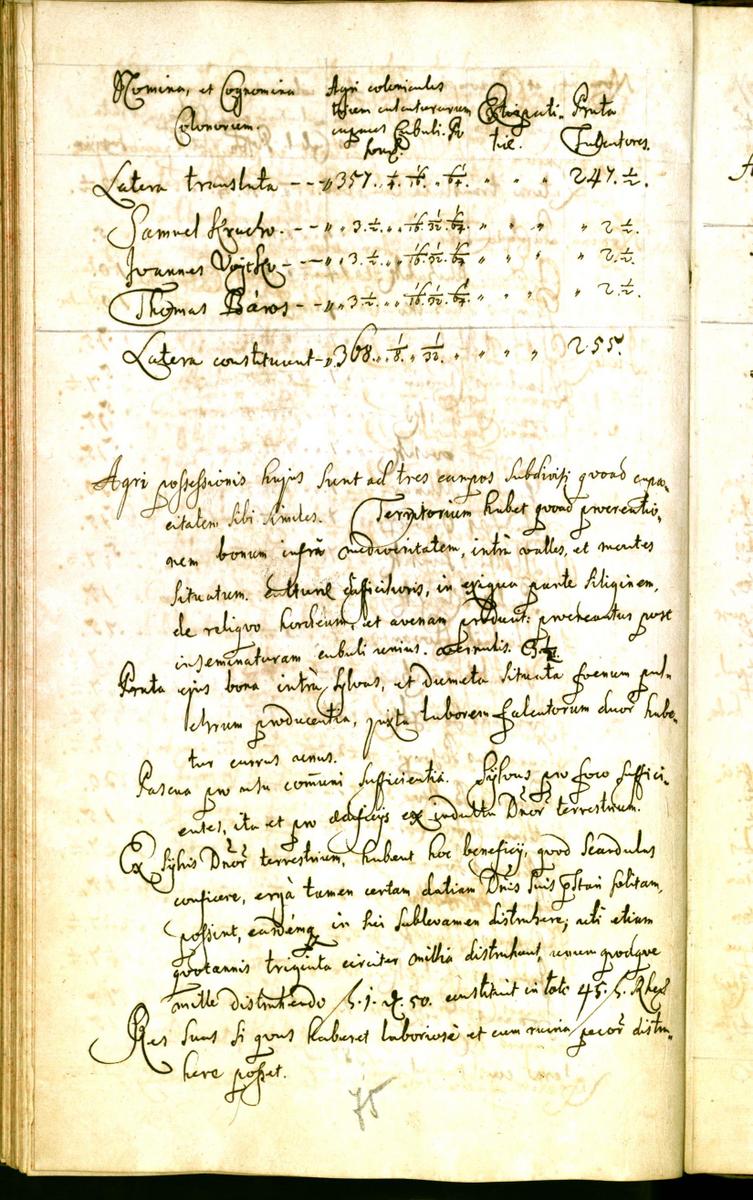 Nomina, et Cognomina Colonorum. Agri coloniales tum cutenturarum cujnus Cubuli. Po Extirpati- tiæ. Prata Falcatores.
Latera translata - - „ 357. „ 1/4. „ 1/16. „ 1/64. „ „ „ 247. 1/2.
Samuel Krucho. - - „ „ 3. 1/2. „ „ 1/16. 1/32. 1/64 „ „ „ „ 2. 1/2.
Joannes Vojtko - - „ „ 3. 1/2. „ „ 1/16. 1/32. 1/64 „ „ „ „ 2. 1/2.
Thomas Báros - - „ „ 3. 1/2. „ „ 1/16. 1/32. 1/64 „ „ „ „ 2. 1/2.
Latera constituunt - „ 368. „ 1/8. „ 1/32. „ „ „ „ 255.
Agri possessionis hujus sunt ad tres campos subdivisi quoad capa-
citatem sibi similes. Territorium habet quoad proventio-
nem bonum infrà mediocritatem, intrà valles, et montes
situatum. culturæ difficilioris, in exigua parte siliginem,
de reliquo hordeum, et avenam producit: procreantur post
inseminaturam cubuli unius. avernalis.
Prata ejus bona intrà sylvas, et dumeta situata foenum pul-
chrum producentia, juxta laborem falcatorum duor habe-
tur currus unus.
Pascua pro usu com̄uni sufficientia. Sylvas pro foco suffici-
entes, ita et pro ædificijs ex indultu Dnor̃ terrestrium.
Ex sylvis Dnor̃ terrestrium, habent hoc beneficij, quod Scandulas
conficere, ergà tamen certam datiam Dnis suis pstari solitam,
possint, easdémq in sui sublevamen distrahere; uti etiam
quotannis triginta circiter millia distrahunt, unum quodque
mille distrahendo f. 1. x. 50. constituit in toto 45. f. Rhen.
Res suas si quas haberet laboriosè et cum ruina pecor̃ distra-
here posset.
75